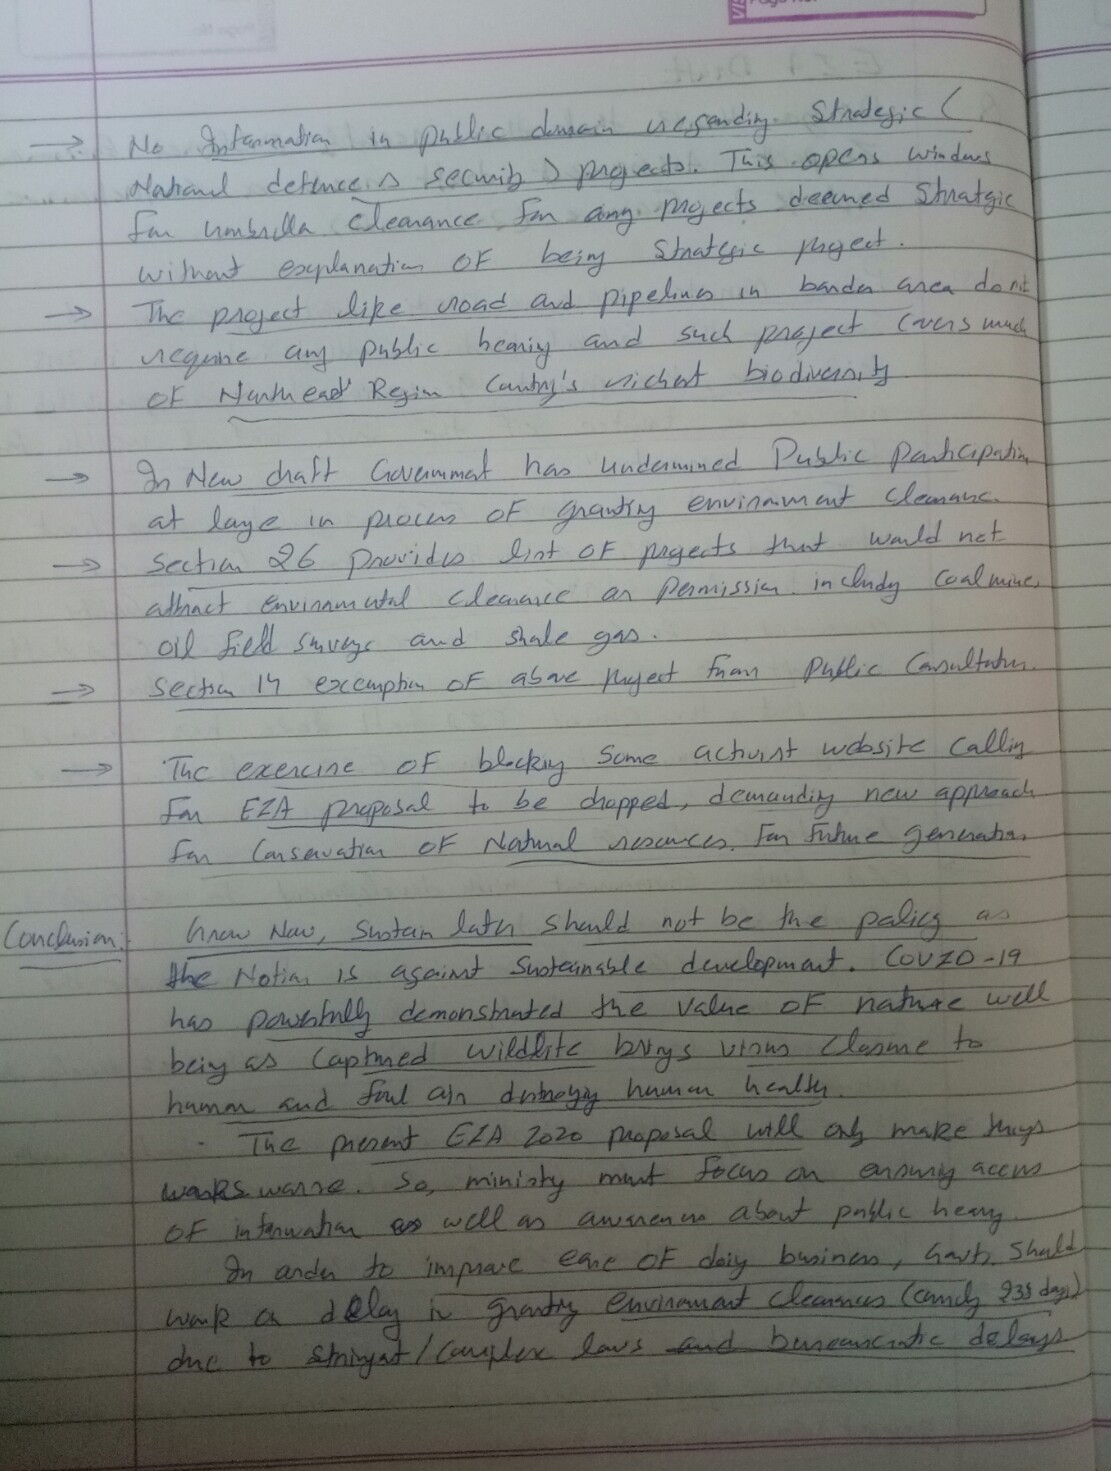 → No Information in public domain regarding Strategic (
National defence & security) projects. This opens windows
for umbrella clearance for any projects deemed Stratgic
without explanation of being Strategic project.
→ The project like road and pipelines in border area do not
require any public hearing and such project covers much
of Northeast Region Country's richest biodiversity
→ In New draft Government has undermined Public participation
at large in process of granting environment clearance.
→ Section 26 provides list of projects that would not
attract environmental clearance or permission including Coal mines,
oil field surveys and shale gas.
→ Section 14 exemption of above project from Public Consultation.
→ The exercise of blocking some activist website calling
for EIA proposal to be dropped, demanding new approach
for Conservation of Natural resources for future generation
Conclusion: Grow Now, Sustain later should not be the policy as
the Notion is against Sustainable development. COVID-19
has powerfully demonstrated the value of nature well
being as Captured wildlife brings virus closure to
human and foul air destroying human health.
The present EIA 2020 proposal will only make things
worse. So, ministry must focus on ensuring access
of information as well as awareness about public hearing
In order to improve ease of doing business, Govt. Should
work on delay in granting environment clearances (238 days)
due to stringent/Complex laws and bureaucratic delays